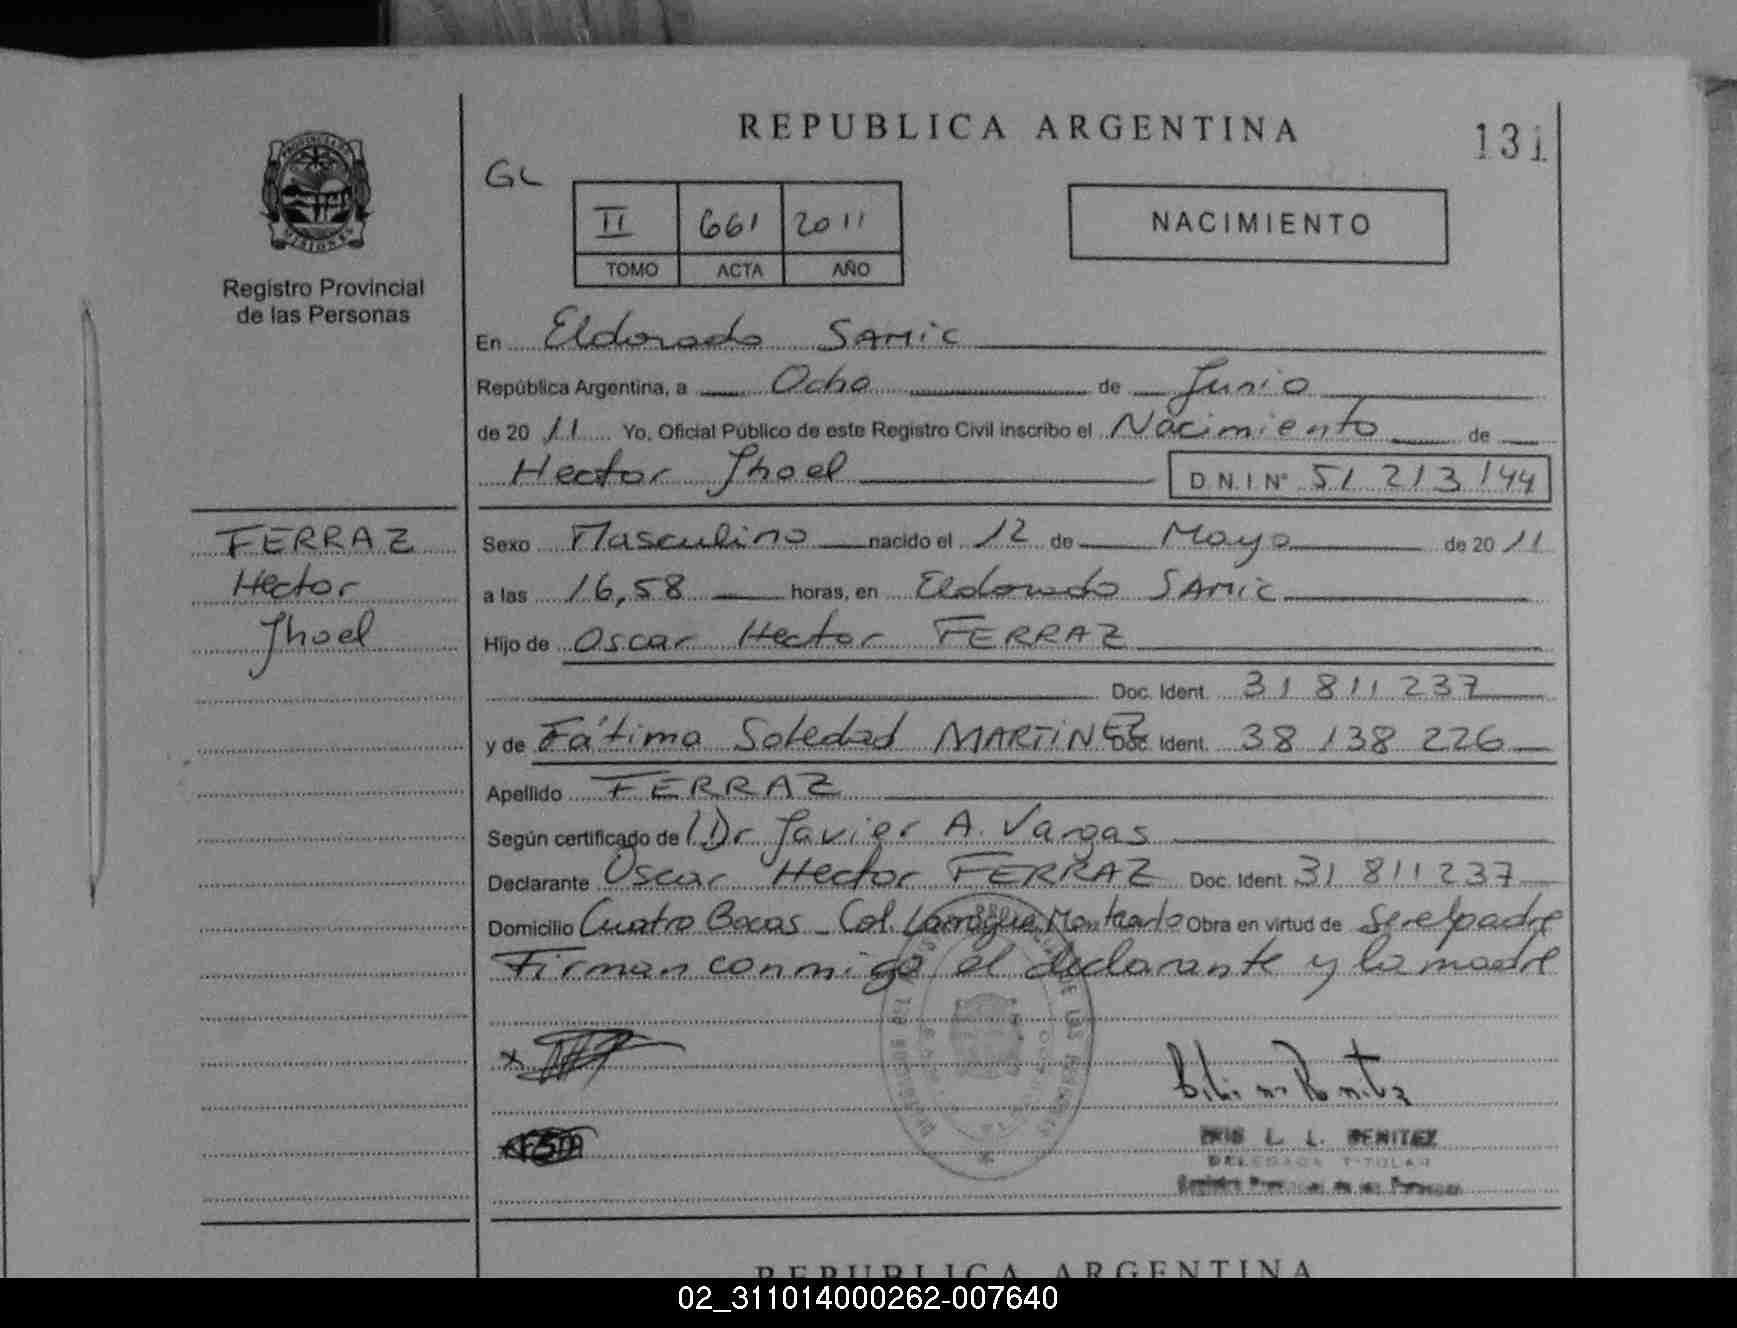 REPUBLICA ARGENTINA
131
GL
II 661 2011
TOMO ACTA AÑO
NACIMIENTO
Registro Provincial
de las Personas
En Eldorado SAMIC
República Argentina, a Ocho de Junio
de 20 11 Yo, Oficial Público de este Registro Civil inscribo el Nacimiento de
Hector Jhoel D.N.I.Nº 51 213 144
FERRAZ
Hector
Jhoel
Sexo Masculino nacido el 12 de Mayo de 20 11
a las 16,58 horas, en Eldorado SAMIC
Hijo de Oscar Hector FERRAZ
Doc. Ident. 31 811 237
y de Fátima Soledad MARTINEZ Doc. Ident. 38 138 226
Apellido FERRAZ
Según certificado de Dr Javier A. Vargas
Declarante Oscar Hector FERRAZ Doc. Ident. 31 811 237
Domicilio Cuatro Bocas - Col. Larrague Montecarlo Obra en virtud de Ser el padre
Firman conmigo el declarante y la madre
L. L. BENITEZ
DELEGADA TITULAR
REPUBLICA ARGENTINA
02_311014000262-007640